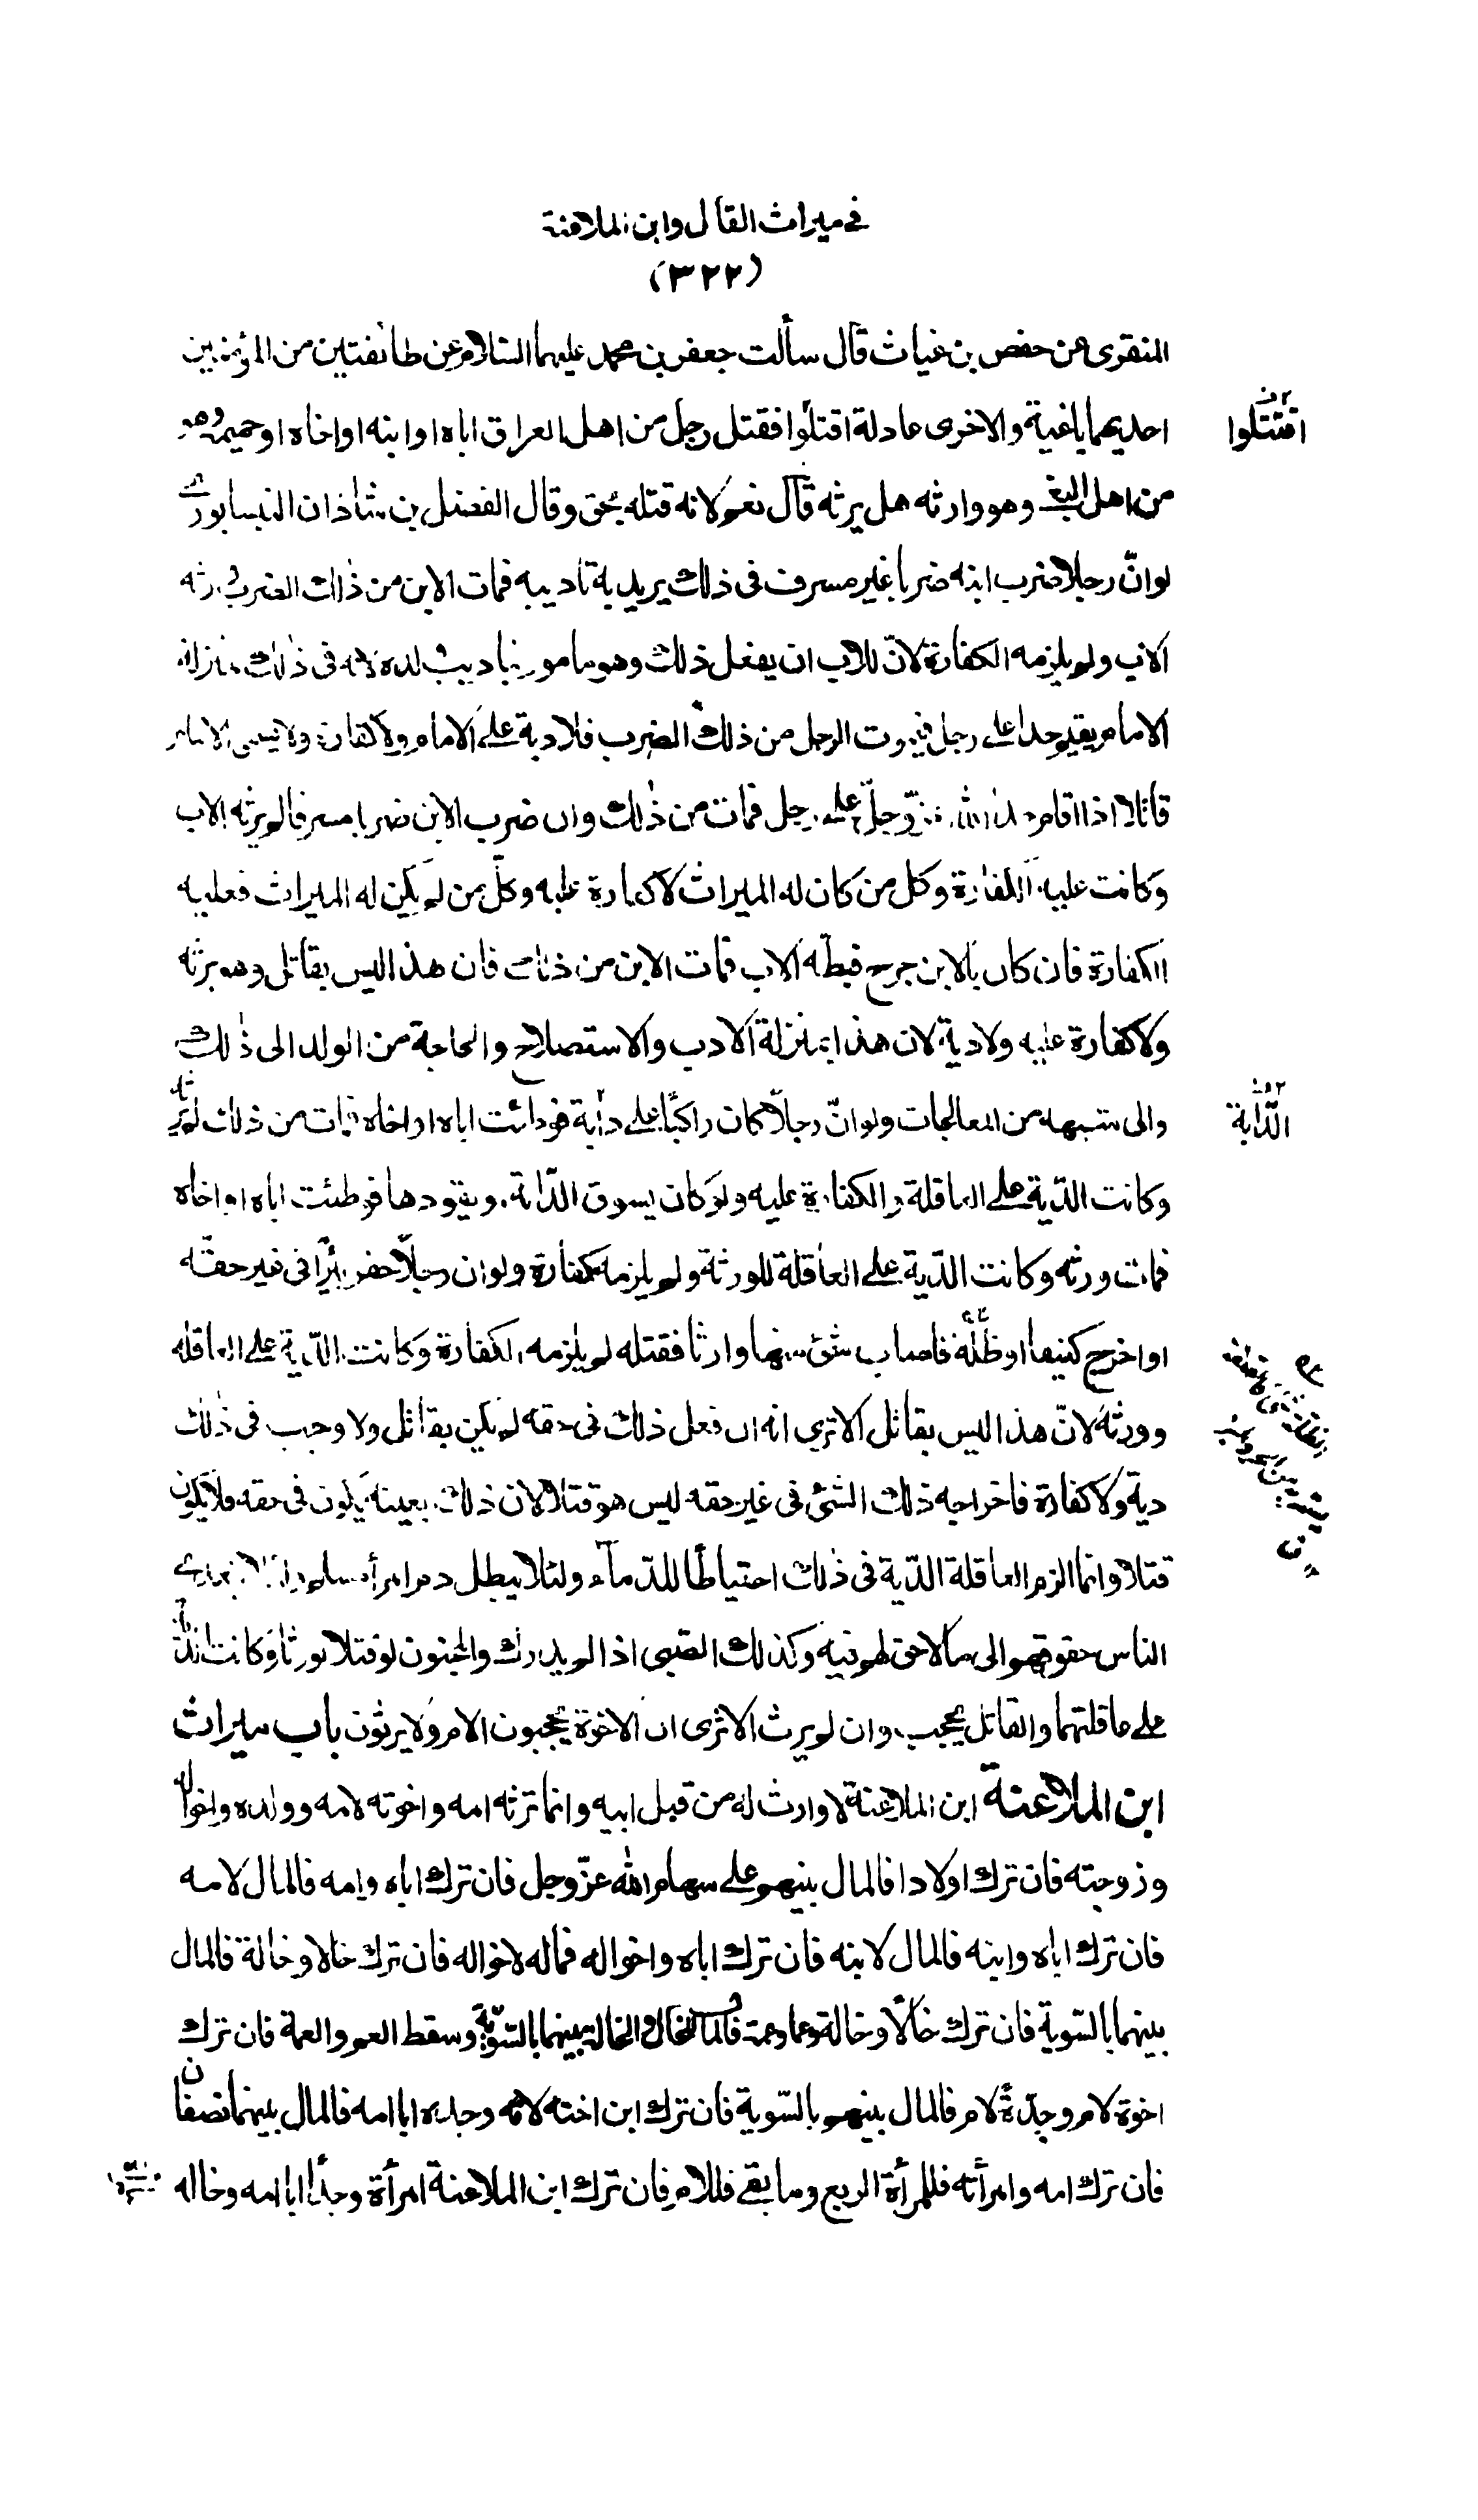 في ميراث القاتل وابن الملاعنة
(٣٢٢)
المنقرى عن حفص بن غياث قال سألت جعفر بن محمد عليهما السلام عن طائفتين من المؤمنين
احديهما باغية والاخرى عادلة اقتتلوا فقتل رجل من اهل العراق اباه او ابنه او اخاه او حميمه وهو
اقتتلوا
من اهل البغي وهو وارثه هل يرثه قال نعم لانه قتله بحق وقال الفضل بن شاذان النيسابوري
لو انّ رجلا ضرب ابنه ضربا غير مسرف فى ذلك يريد به تاديبه فمات الابن من ذلك الضرب ورثه
الاب ولم يلزمه الكفارة لانّ للاب ان يفعل ذلك وهو مامور بتاديب ولده لانه فى ذلك بمنزلة
الامام يقيم حدا على رجل فيموت الرجل من ذلك الضرب فلا دية على الامام ولا كفارة ولا يسمى الامام
قاتلا اذا اقام حد الله عزّ وجلّ على رجل فمات من ذلك وان ضرب الابن ضربا مسرفا لم يرثه الاب
وكانت عليه الكفارة وكل من كان له الميراث لا كفارة عليه وكلّ من لم يكن له الميراث فعليه
الكفارة فان كان بالابن جرح فبطّه الاب فمات الابن من ذلك فان هذا ليس بقاتل وهو يرثه
ولا كفارة عليه ولا دية لان هذا بمنزلة الادب والاستصلاح والحاجة من الولد الى ذلك
والى شبهه من المعالجات ولو انّ رجلا كان راكبًا على دابة فوطئت اباه او اخاه فمات من ذلك لم يرثه
الدّابة
وكانت الدّية على العاقلة والكفارة عليه ولو كان يسوق الدّابة ويقودها فوطئت اباه او اخاه
فمات ورثه وكانت الدّية على العاقلة للورثة ولم يلزمه كفارة ولو ان رجلًا حفر بئرًا فى غير حقّه
او اخرج كنيفا او ظلّة فاصاب شئ منها وارثا فقتله لم يلزمه الكفارة وكانت الدّية على العاقلة
وورثه لانّ هذا ليس بقاتل الا ترى انه ان فعل ذلك فى حقه لم يكن بقاتل ولا وجب فى ذلك
دية ولا كفارة فاخراجه ذلك الشئ فى غير حقه ليس هو قتلا لان ذلك بعينه يكون فى حقه فلا يكون
قتلا وانما الزم العاقلة الدّية فى ذلك احتياطًا للدّماء ولئلا يبطل دم امرأ مسلم ولئلا يتعدى
الناس حقوقهم الى ما لا حق لهم فيه وكذلك الصّبى اذا لم يدرك والمجنون لو قتلا لورثا وكانت الدّية
على عاقلتهما والقاتل يحجب وان لم يرث الا ترى ان الاخوة يحجبون الام ولا يرثون باب ميراث
ابن الملاعنة ابن الملاعنة لا وارث له من قبل ابيه وانما ترثه امه واخوته لامه وولده واخواله
وزوجته فان ترك اولادا فالمال بينهم على سهام الله عزّ وجل فان ترك اباه وامه فالمال لامه
فان ترك اباه وابنه فالمال لابنه فان ترك اباه واخواله فماله لاخواله فان ترك خالا وخالة فالمال
بينهما بالسّوية فان ترك خالًا وخالة وعما وعمة فالمال للخال والخالة بينهما بالسّويّة وسقط العم والعمة فان ترك
اخوة لام وجدّة لام فالمال بينهم بالسّوية فان ترك ابن اخته لامه وجده ابا امه فالمال بينهما نصفان
فان ترك امه وامرأته فللمرأة الربع وما بقي فللام فان ترك ابن الملاعنة امرأة وجدًا ابا امه وخاله